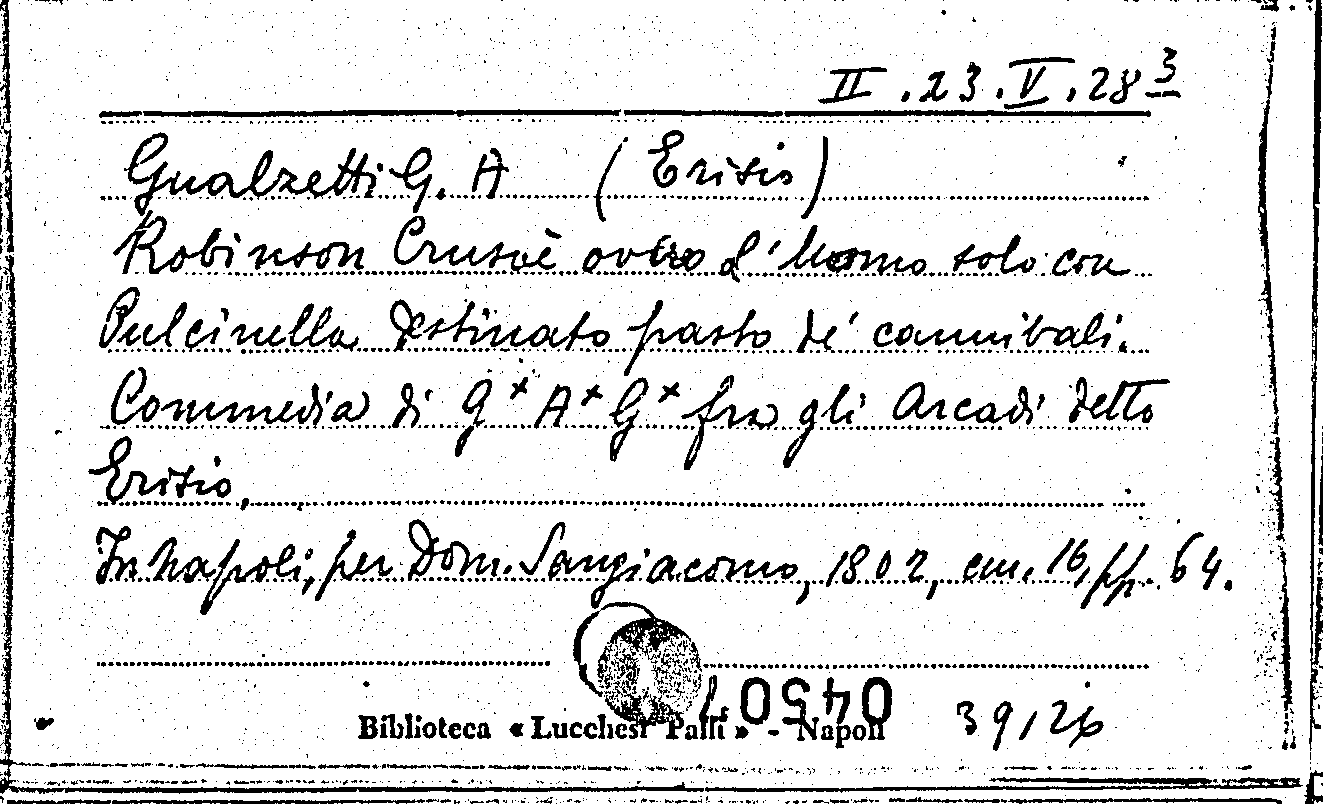 II.23.V.28 3
Gualzetti G. A (Erisio)
Robinson Crusoè ovvero l'Uomo solo con
Pulcinella destinato pasto de' cannibali.
Commedia di G* A* G* fra gli Arcadi detto
Erisio,
In Napoli, per Dom. Sangiacomo, 1802, cm. 16, pp. 64.
0450
Biblioteca « Lucchesi Palli » - Napoli
39,26